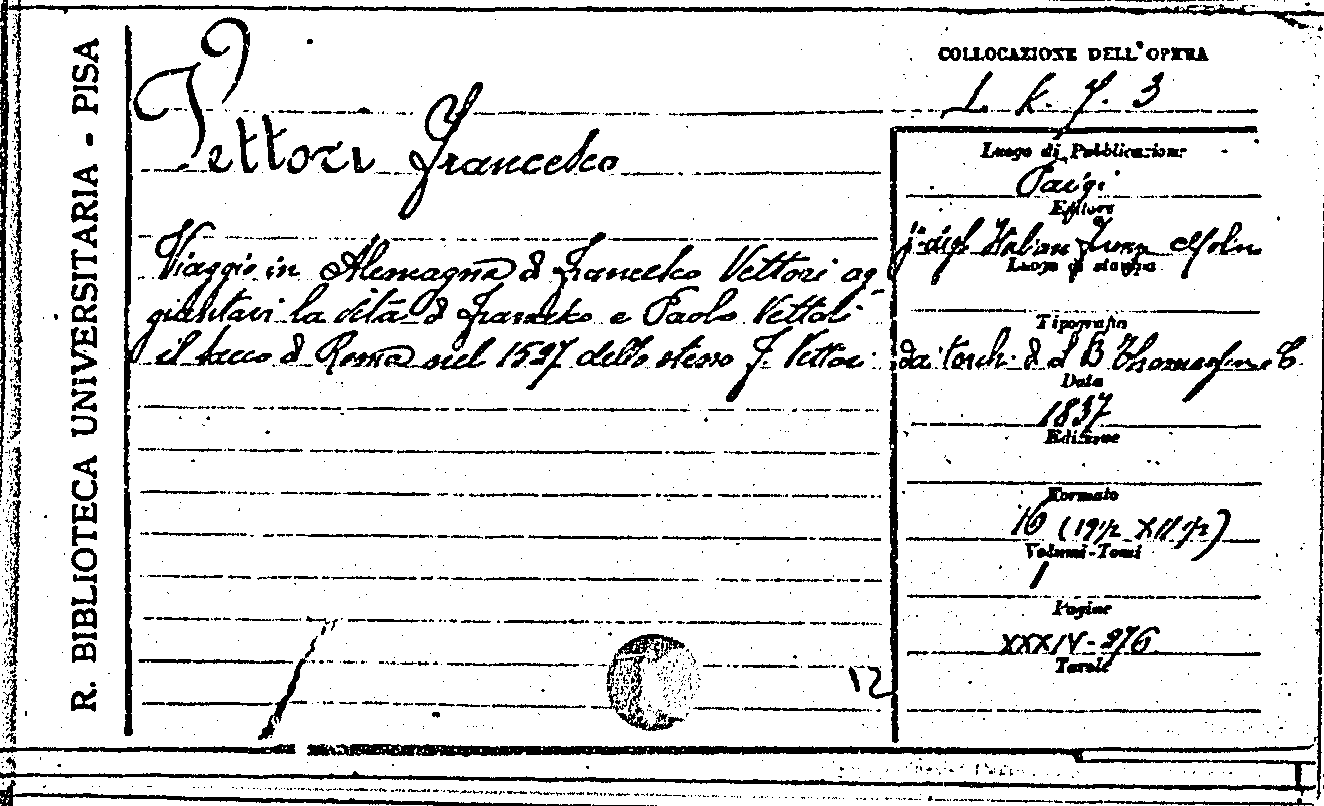 R. BIBLIOTECA UNIVERSITARIA - PISA
COLLOCAZIONE DELL'OPERA
I. K. 7. 3
Vettori Francesco
Luogo di Pubblicazione
Parigi
Editore
Viaggio in Alemagna di Francesco Vettori ag
giuntavi la vita di Francesco e Paolo Vettori
il sacco di Roma nel 1527 dello stesso F. Vettori
Luogo di stampa
Tipografia
da' torch. di
Data
1837
Edizione
Formato
16 (19½ X 11½)
Volumi-Tomi
1
Pagine
XXXIV-276
Tavole
12